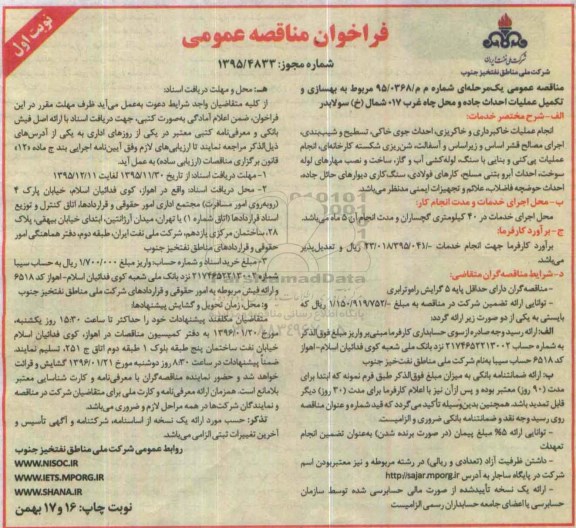 نوبت اول
فراخوان مناقصه عمومی
شماره مجوز: ۱۳۹۵/۴۸۳۳
شرکت ملی نفت ایران
شرکت ملی مناطق نفتخیز جنوب
مناقصه عمومی یک‌مرحله‌ای شماره م م/۹۵/۰۳۶۸ مربوط به بهسازی و
تکمیل عملیات احداث جاده و محل چاه غرب ۰۱۷ شمال (خ) سولابدر
الف-شرح مختصر خدمات:
انجام عملیات خاکبرداری و خاکریزی، احداث جوی خاکی، تسطیح و شیب‌بندی،
اجرای مصالح قشر اساس و زیراساس و آسفالت، شن‌ریزی شکسته کارخانه‌ای، انجام
عملیات پی کنی و بنایی با سنگ، لوله‌کشی آب و گاز، ساخت و نصب مهارهای لوله
سوخت، احداث آبرو بتنی مسلح، کارهای فولادی، سنگ‌کاری دیوارهای حائل جاده،
احداث حوضچه فاضلاب، علائم و تجهیزات ایمنی مدنظر می‌باشد.
ب- محل اجرای خدمات و مدت انجام کار:
محل اجرای خدمات در ۴۰ کیلومتری گچساران و مدت انجام آن ۵ ماه می‌باشد.
ج- برآورد کارفرما:
برآورد کارفرما جهت انجام خدمات ۲۳/۰۱۸/۳۹۵/۰۴۱/- ریال و تعدیل‌پذیر
می‌باشد.
د-شرایط مناقصه‌گران متقاضی:
- مناقصه‌گران دارای حداقل پایه ۵ گرایش راه‌وترابری
- توانایی ارائه تضمین شرکت در مناقصه به مبلغ ۱/۱۵۰/۹۱۹/۷۵۲/- ریال که
بایستی به یکی از دو صورت زیر ارائه گردد:
الف: ارائه رسید وجه صادره از سوی حسابداری کارفرما مبنی بر واریز مبلغ فوق‌الذکر
به شماره حساب ۲۱۷۴۶۵۲۲۱۳۰۰۲ نزد بانک ملی شعبه کوی فدائیان اسلام-اهواز
کد ۶۵۱۸ حساب سیبا به‌نام شرکت ملی مناطق نفتخیز جنوب
ب: ارائه ضمانتنامه بانکی به میزان مبلغ فوق‌الذکر طبق فرم نمونه که ابتدا برای
مدت (۹۰ روز) معتبر بوده و پس از آن نیز با اعلام کارفرما برای مدت (۳۰ روز) دیگر
قابل تمدید باشد. همچنین بدین‌وسیله تأکید می‌گردد که قید شماره و عنوان مناقصه
روی رسید وجه نقد و ضمانتنامه بانکی ضروری و الزامیست.
- توانایی ارائه ۵% مبلغ پیمان (در صورت برنده شدن) به‌عنوان تضمین انجام
تعهدات
- داشتن ظرفیت آزاد (تعدادی و ریالی) در رشته مربوطه و نیز معتبربودن اسم
شرکت در پایگاه ساجار به آدرس http://sajar.mporg.ir
- ارائه یک نسخه تأییدشده از صورت مالی حسابرسی شده توسط سازمان
حسابرسی یا اعضای جامعه حسابداران رسمی الزامیست.
هـ: محل و مهلت دریافت اسناد:
از کلیه متقاضیان واجد شرایط دعوت به‌عمل می‌آید ظرف مهلت مقرر در این
فراخوان، ضمن اعلام آمادگی به‌صورت کتبی، جهت دریافت اسناد با ارائه اصل فیش
بانکی و معرفی‌نامه کتبی معتبر در یکی از روزهای اداری به یکی از آدرس‌های
ذیل‌الذکر مراجعه نمایند تا ارزیابی‌های لازم وفق آیین‌نامه اجرایی بند ج ماده «۱۲»
قانون برگزاری مناقصات (ارزیابی ساده) به عمل آید.
۱- مهلت دریافت اسناد: از تاریخ ۱۳۹۵/۱۱/۳۰ لغایت ۱۳۹۵/۱۲/۱۱
۲- محل دریافت اسناد: واقع در اهواز، کوی فدائیان اسلام، خیابان پارک ۴
(روبه‌روی امور مسافرت) مجتمع اداری امور حقوقی و قراردادها، اتاق کنترل و توزیع
اسناد قراردادها (اتاق شماره ۱) یا تهران، میدان آرژانتین، ابتدای خیابان بیهقی، پلاک
۲۸، ساختمان مرکزی یازدهم، شرکت ملی نفت ایران، طبقه دوم، دفتر هماهنگی امور
حقوقی و قراردادهای مناطق نفتخیز جنوب
۳- مبلغ خرید اسناد و شماره حساب: واریز مبلغ ۱/۷۰۰/۰۰۰ ریال به حساب سیبا
شماره ۲۱۷۴۶۵۲۲۱۳۰۰۲ نزد بانک ملی شعبه کوی فدائیان اسلام-اهواز کد ۶۵۱۸
و ارائه فیش مربوطه به امور حقوقی و قراردادهای شرکت ملی مناطق نفتخیز جنوب
و: محل، زمان تحویل و گشایش پیشنهادها:
متقاضیان مکلفند پیشنهادات خود را حداکثر تا ساعت ۱۵:۳۰ روز یکشنبه،
مورخ ۱۳۹۶/۰۱/۲۰ به دفتر کمیسیون مناقصات در اهواز، کوی فدائیان اسلام
خیابان نفت ساختمان پنج طبقه بلوک ۱ طبقه دوم اتاق ج ۲۵۱، تسلیم نمایند.
ضمناً پیشنهادات در ساعت ۸:۳۰ روز دوشنبه مورخ ۱۳۹۶/۰۱/۲۱ گشایش و قرائت
خواهد شد و حضور نماینده مناقصه‌گران با معرفی‌نامه و کارت شناسایی معتبر
بلامانع است. همزمان ارائه معرفی‌نامه و کارت ملی برای متقاضیان شرکت در مناقصه
و نمایندگان شرکت‌ها در همه مراحل لازم و ضروری می‌باشد.
تذکر: حسب مورد ارائه یک نسخه از اساسنامه، شرکتنامه و آگهی تأسیس و
آخرین تغییرات ثبتی الزامی می‌باشد.
روابط عمومی شرکت ملی مناطق نفتخیز جنوب
WWW.NISOC.IR
WWW.IETS.MPORG.IR
WWW.SHANA.IR
نوبت چاپ: ۱۶ و ۱۷ بهمن